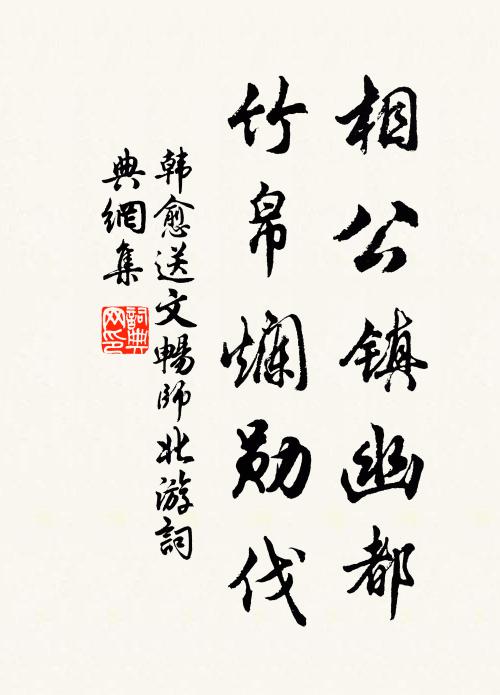 相公镇幽都
竹帛爛勋伐
韩愈送文暢师北游詞
典網集
詞典
网印